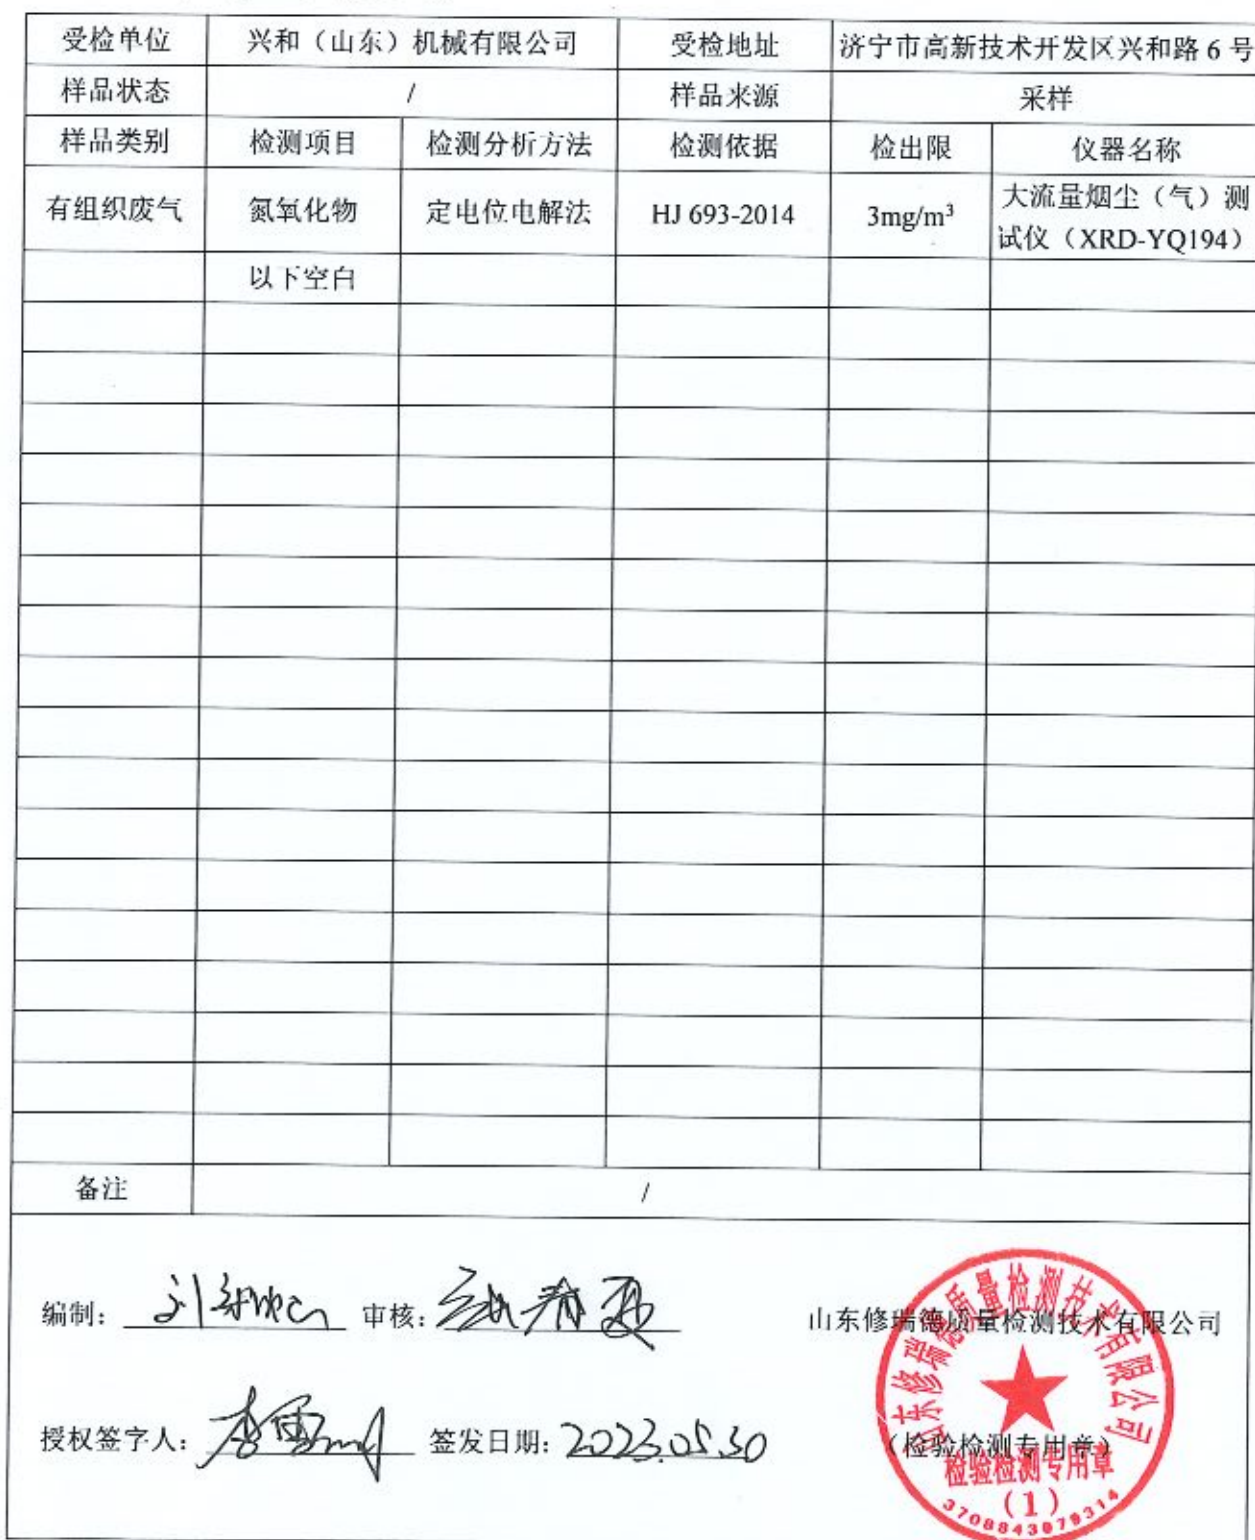 受检单位 兴和（山东）机械有限公司 受检地址 济宁市高新技术开发区兴和路 6 号
样品状态 / 样品来源 采样
样品类别 检测项目 检测分析方法 检测依据 检出限 仪器名称
有组织废气 氮氧化物 定电位电解法 HJ 693-2014 3mg/m³ 大流量烟尘（气）测
试仪（XRD-YQ194）
以下空白
备注 /
编制： 审核：
山东修瑞德质量检测技术有限公司
授权签字人： 签发日期：2023.05.30
（检验检测专用章）
山东修瑞德质量检测技术有限公司
检验检测专用章
（1）